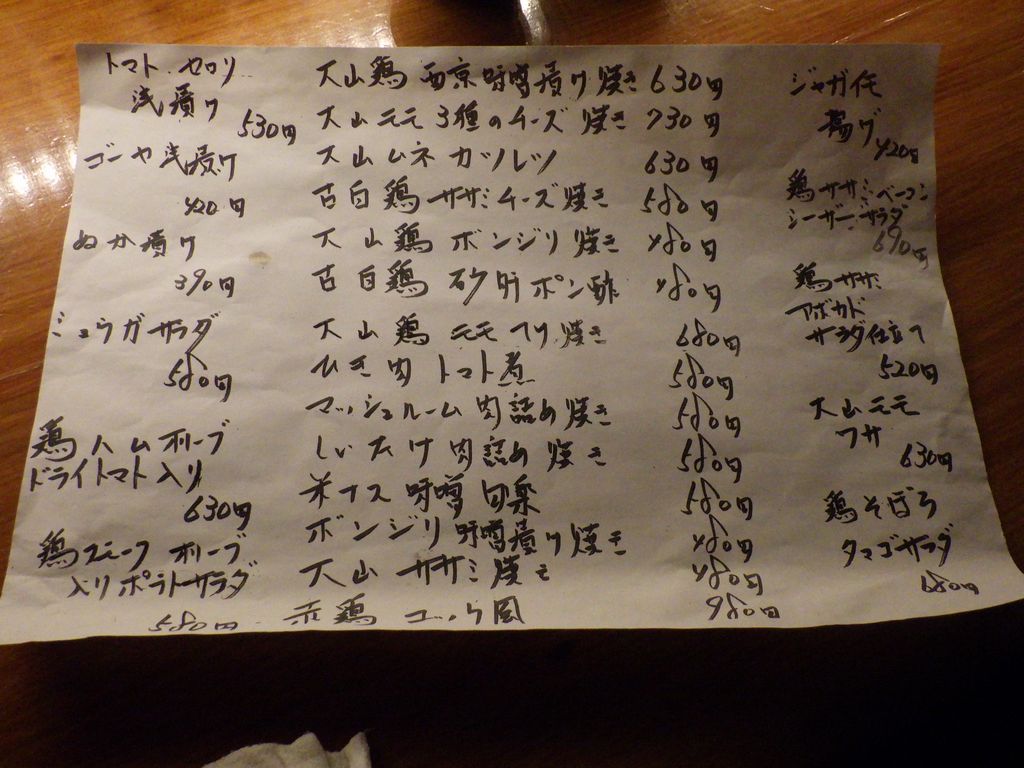 トマト セロリ
浅漬け
530円
ゴーヤ浅漬け
420円
ぬか漬け
390円
ミョウガサラダ
580円
鶏ハムオリーブ
ドライトマト入り
630円
鶏スモーク オリーブ
入りポテトサラダ
580円
大山鶏 西京味噌漬け焼き 630円
大山モモ 3種のチーズ焼き 730円
大山ムネカツレツ 630円
古白鶏ササミチーズ焼き 580円
大山鶏 ボンジリ焼き 480円
古白鶏 砂肝ポン酢 480円
大山鶏 モモ テリ焼き 680円
ひき肉 トマト煮 580円
マッシュルーム肉詰め焼き 580円
しいたけ肉詰め焼き 580円
米ナス 味噌 580円
ボンジリ味噌漬け焼き 480円
大山 ササミ焼き 480円
赤鶏 風 980円
ジャガイモ
揚げ
420円
鶏ササミベーコン
シーザーサラダ
690円
鶏ササミ
アボカド
サラダ仕立て
520円
大山モモ
ワサ
630円
鶏そぼろ
タマゴサラダ
680円